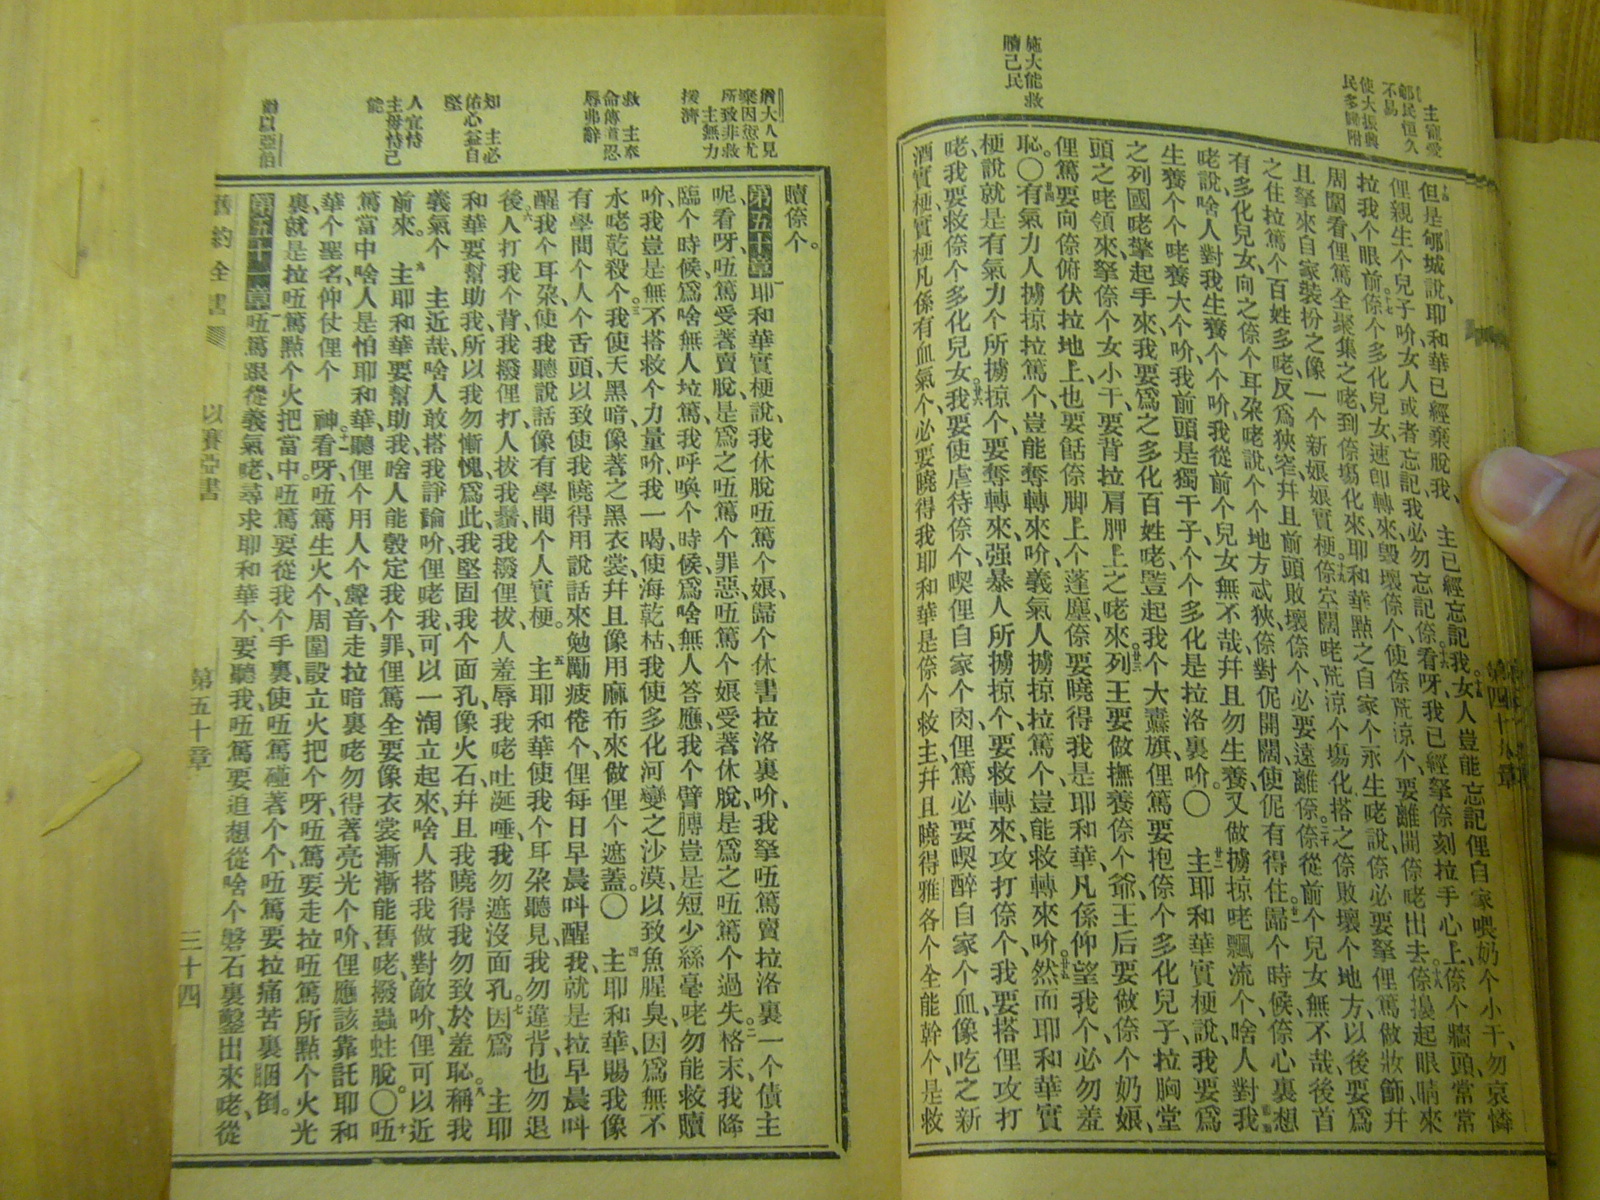 主寵愛
郇民恒久
不易
使大振興
民多歸附
施大能救
贖己民
但是郇城說、耶和華已經棄脫我、主已經忘記我。女人豈能忘記俚自家喂奶个小干、勿哀憐
俚親生个兒子吤、女人或者忘記、我必勿忘記倷。看呀、我已經拏倷刻拉手心上、倷个牆頭、常常
拉我个眼前。倷个多化兒女、速卽轉來、毀壞倷个、使倷荒涼个、要離開倷咾出去。倷擡起眼睛來
周圍看、俚篤全聚集之咾到倷塲化來、耶和華點之自家个永生咾說、倷必要拏俚篤做妝飾、幷
且拏來自家裝扮之、像一个新娘娘實梗。倷空闊咾荒涼个塲化、搭之倷敗壞个地方、以後要爲
之住拉篤个百姓多咾、反爲狹窄、幷且前頭敗壞倷个、必要遠離倷。倷從前个兒女無不哉、後首
有多化兒女、向之倷个耳朶咾說、个个地方忒狹、倷對伲開闊、使伲有得住。歸个時候、倷心裏想
咾說、啥人對我生養个个吤、我從前个兒女無不哉、幷且勿生養、又做擄掠咾飄流个、啥人對我
生養个个咾養大个吤、我前頭是獨干子、个个多化是拉洛裏吤。〇主耶和華實梗說、我要爲
之列國咾擎起手來、我要爲之多化百姓咾、豎起我个大纛旗、俚篤要抱倷个多化兒子、拉胸堂
頭之咾領來、拏倷个女小干、要背拉肩胛上之咾來。列王要做撫養倷个爺、王后要做倷个奶娘、
俚篤要向倷俯伏拉地上、也要餂倷脚上个蓬塵、倷要曉得我是耶和華、凡係仰望我个、必勿羞
恥。〇有氣力人擄掠拉篤个、豈能奪轉來吤、義氣人擄掠拉篤个、豈能救轉來吤。然而耶和華實
梗說、就是有氣力个所擄掠个、要奪轉來、强暴人所擄掠个、要救轉來、攻打倷个、我要搭俚攻打
咾、我要救倷个多化兒女。我要使虐待倷个、喫俚自家个肉、俚篤必要喫醉自家个血、像吃之新
酒實梗、實梗凡係有血氣个、必要曉得我耶和華是倷个救主、幷且曉得雅各个全能幹个、是救
第四十九章
贖倷个。
第五十章 耶和華實梗說、我休脫𠮶篤个娘、歸个休書拉洛裏吤、我拏𠮶篤賣拉洛裏一个債主
呢、看呀、𠮶篤受著賣脫、是爲之𠮶篤个罪惡、𠮶篤个娘受著休脫、是爲之𠮶篤个過失。格末我降
臨个時候、爲啥無人垃篤、我呼喚个時候、爲啥無人答應、我个臂膊豈是短少絲毫咾勿能救贖
吤、我豈是無不搭救个力量吤、我一喝、使海乾枯、我使多化河變之沙漠、以致魚腥臭、因爲無不
水咾乾殺个。我使天黑暗、像著之黑衣裳、幷且像用麻布來做俚个遮蓋。〇主耶和華、賜我像
有學問个人个舌頭、以致使我曉得用說話來勉勵疲倦个、俚每日早晨呌醒我、就是拉早晨呌
醒我个耳朶、使我聽說話、像有學問个人實梗。主耶和華使我个耳朶聽見、我勿違背、也勿退
後。人打我个背、我撥俚打、人拔我鬚、我撥俚拔、人羞辱我咾吐涎唾、我勿遮沒面孔。因爲主耶
和華要幫助我、所以我勿慚愧、爲此我堅固我个面孔、像火石、幷且我曉得我勿致於羞恥。稱我
義氣个主近哉、啥人敢搭我諍論吤、俚咾我、可以一淘立起來、啥人搭我做對敵吤、俚可以近
前來。主耶和華要幫助我、啥人能彀定我个罪、俚篤全要像衣裳漸漸能舊咾、撥蟲蛀脫。〇𠮶
篤當中、啥人是怕耶和華、聽俚个用人个聲音、走拉暗裏咾勿得著亮光个吤、俚應該靠託耶和
華个聖名、仰仗俚个神。看呀、𠮶篤生火个、周圍設立火把个呀、𠮶篤要走拉𠮶篤所點个火光
裏、就是拉𠮶篤點个火把當中。𠮶篤要從我个手裏、使𠮶篤碰著个个、𠮶篤要拉痛苦裏睏倒。
第五十一章 𠮶篤跟從義氣咾、尋求耶和華个、要聽我、𠮶篤要追想從啥个磐石裏鑿出來咾、從
猶大人見
棄因愆尤
所致非救
主無力
援濟
救主奉
命傳道忍
辱弗辭
知主必
佑心益自
堅
人宜恃
主毋恃己
能
勸以亞伯
舊約全書 以賽亞書 第五十章 三十四